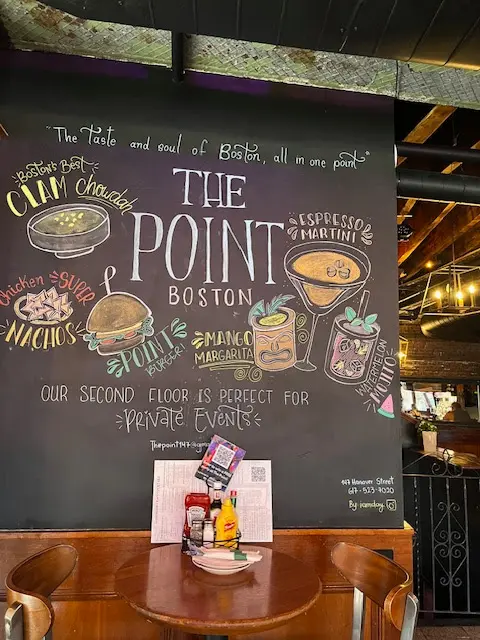 "The Taste and soul of Boston, all in one point"
BOSTON'S BEST
CLAM Chowdah
THE
POINT
BOSTON
ESPRESSO
MARTINI
Chicken SUPER
NACHOS
POINT
BURGER!
MANGO
MARGARITA
WATERMELON
MOJITO
OUR SECOND FLOOR IS PERFECT FOR
Private Events
Thepoint147@
147 Hanover Street
617-523-7020
By: iamday.